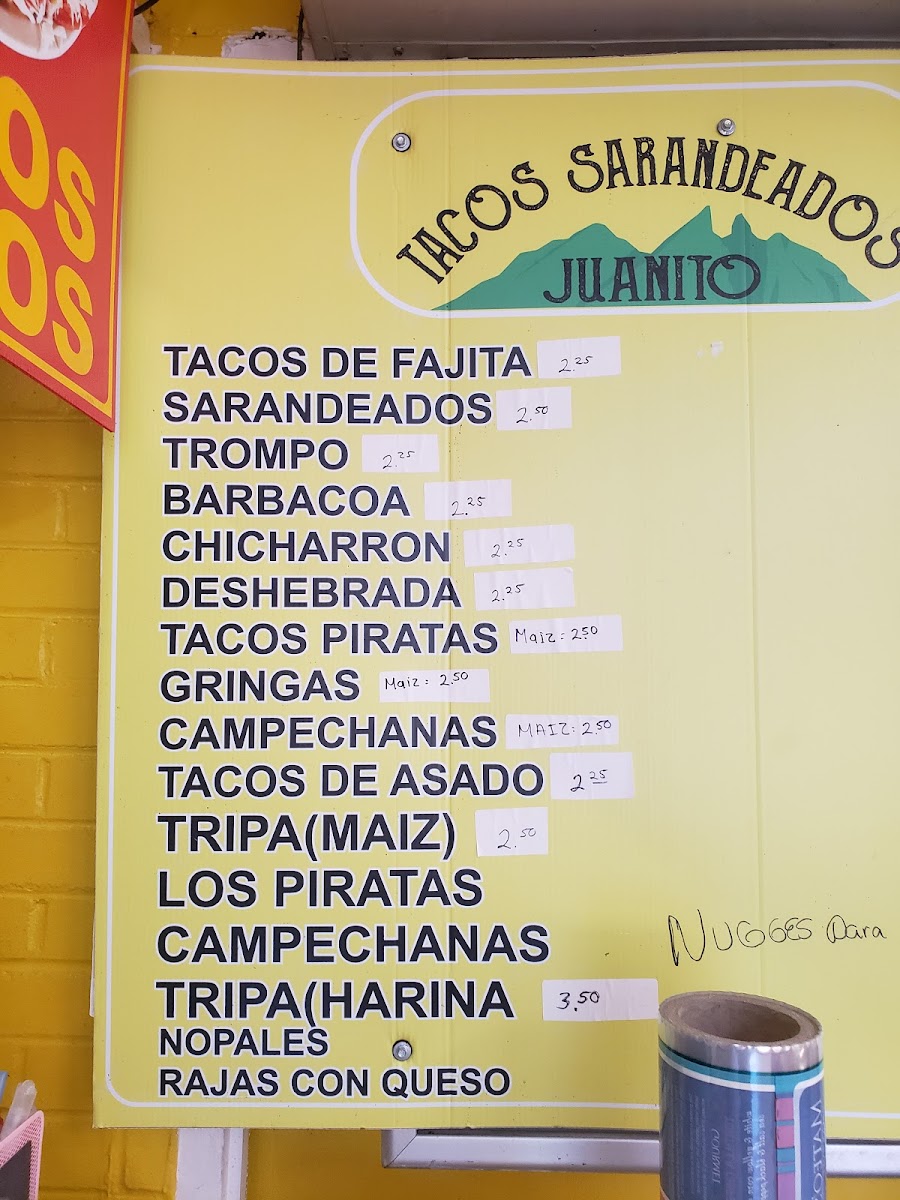 OS
OS
TACOS SARANDEADOS
JUANITO
TACOS DE FAJITA 2.25
SARANDEADOS 2.50
TROMPO 2.25
BARBACOA 2.25
CHICHARRON 2.25
DESHEBRADA 2.25
TACOS PIRATAS Maiz: 2.50
GRINGAS Maiz: 2.50
CAMPECHANAS MAIZ: 2.50
TACOS DE ASADO 2 25
TRIPA(MAIZ) 2.50
LOS PIRATAS
CAMPECHANAS
NUGGES Para
TRIPA(HARINA 3.50
NOPALES
RAJAS CON QUESO
GOURMET